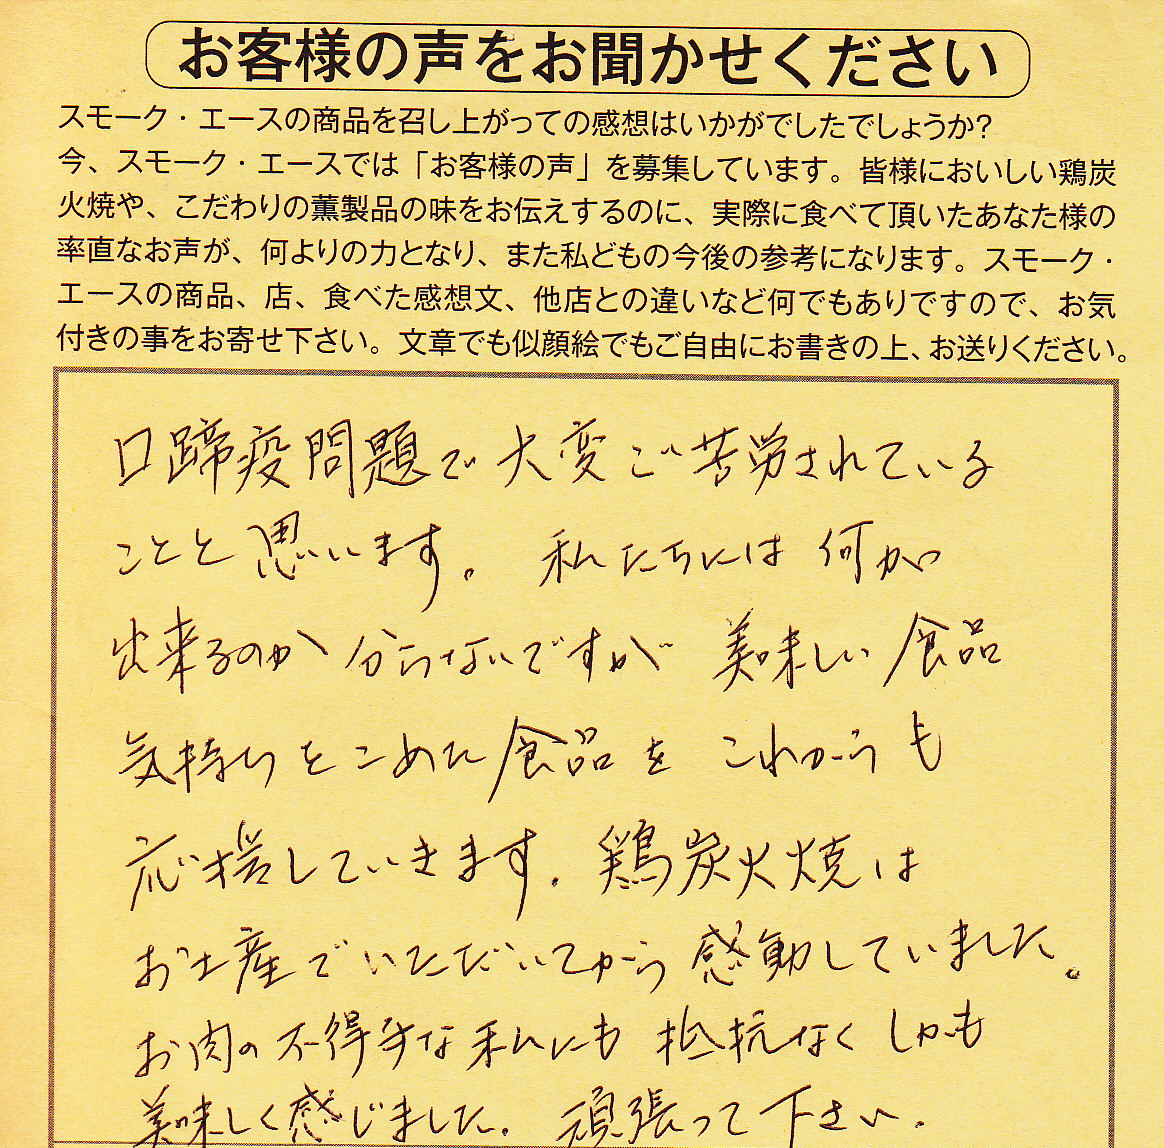 お客様の声をお聞かせください
スモーク・エースの商品を召し上がっての感想はいかがでしたでしょうか?
今、スモーク・エースでは「お客様の声」を募集しています。皆様においしい鶏炭
火焼や、こだわりの薫製品の味をお伝えするのに、実際に食べて頂いたあなた様の
率直なお声が、何よりの力となり、また私どもの今後の参考になります。スモーク・
エースの商品、店、食べた感想文、他店との違いなど何でもありですので、お気
付きの事をお寄せ下さい。文章でも似顔絵でもご自由にお書きの上、お送りください。
口蹄疫問題で大変ご苦労されている
ことと思います。私たちには何が
出来るのか分らないですが美味しい食品
気持ちをこめた食品をこれからも
応援していきます。鶏炭火焼は
お土産でいただいてから感動していました。
お肉の不得手な私にも抵抗なくしかも
美味しく感じました。頑張って下さい。